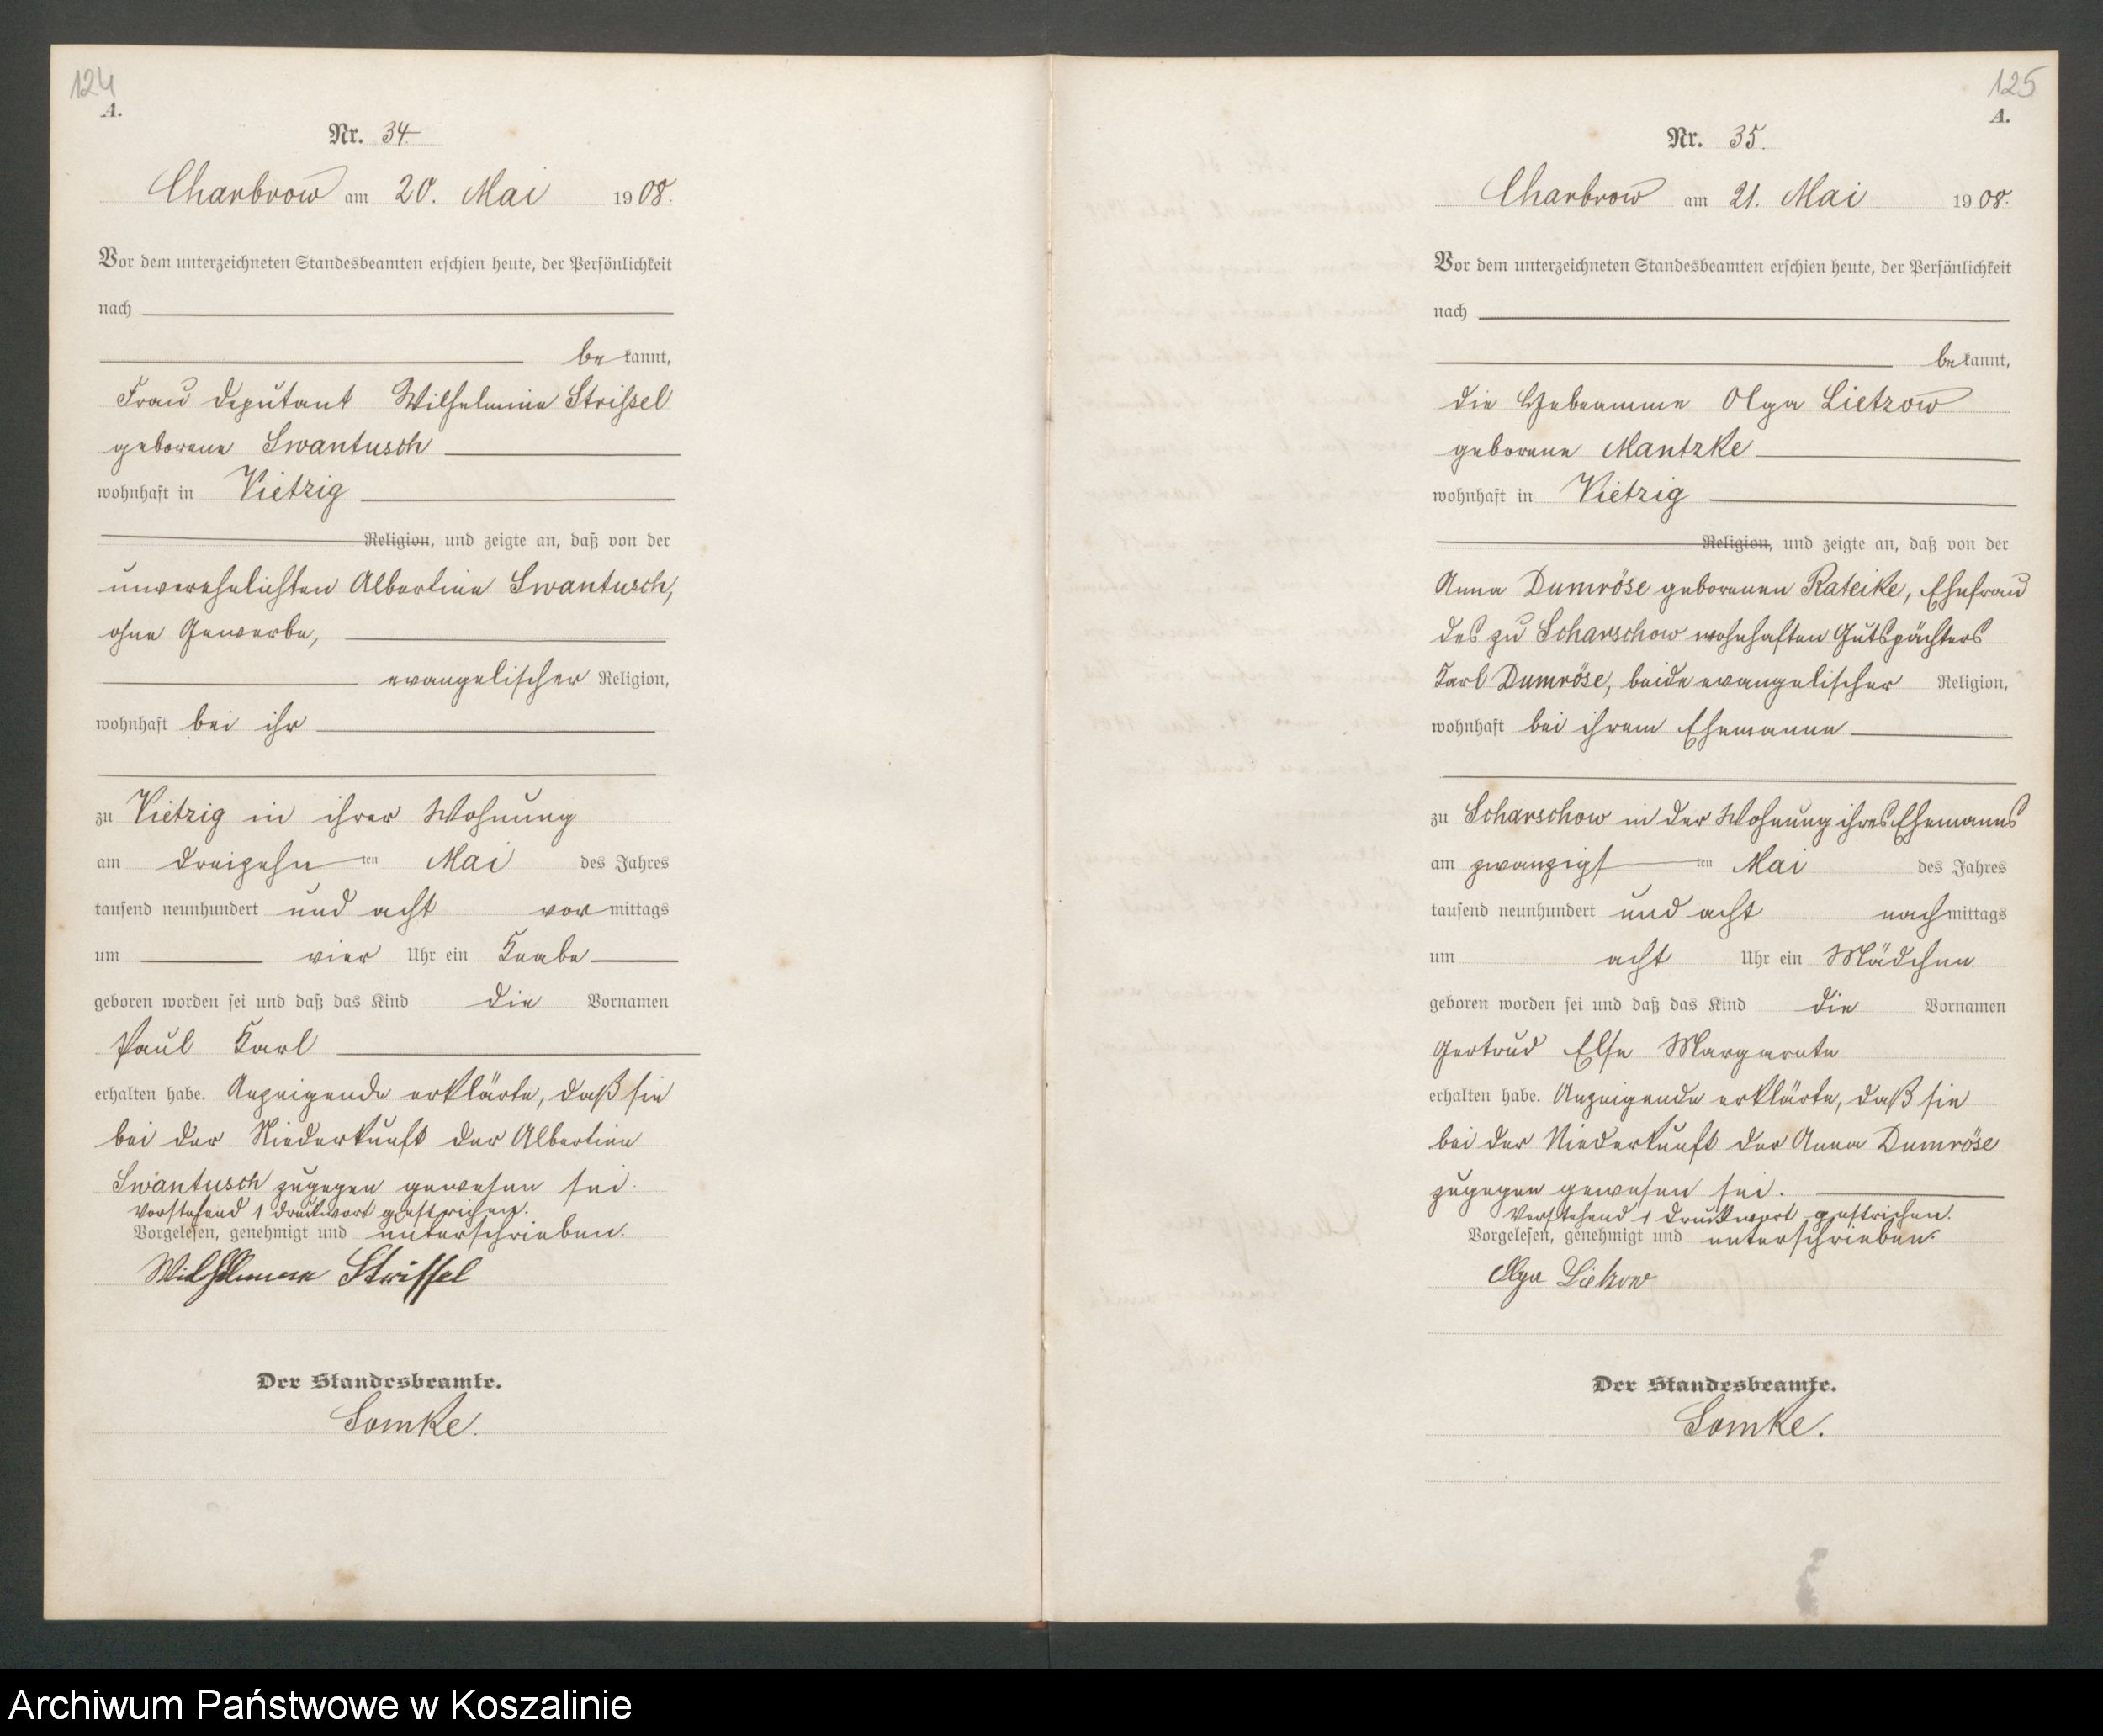 124
A.
Nr. 34.
Charbrow am 20. Mai 1908.
Vor dem unterzeichneten Standesbeamten erschien heute, der Persönlichkeit
nach
bekannt,
Frau Deputant Wilhelmine Strißel
geborene Swantusch
wohnhaft in Vietzig
Religion, und zeigte an, daß von der
unverehelichten Albertine Swantusch,
ohne Gewerbe,
evangelischer Religion,
wohnhaft bei ihr
zu Vietzig in ihrer Wohnung
am dreizehnten Mai des Jahres
tausend neunhundert und acht vormittags
um vier Uhr ein Knabe
geboren worden sei und daß das Kind die Vornamen
Paul Karl
erhalten habe. Anzeigende erklärte, daß sie
bei der Niederkunft der Albertine
Swantusch zugegen gewesen sei.
Vorstehend 1 Druckwort gestrichen.
Vorgelesen, genehmigt und unterschrieben.
Wilhelmine Strissel
Der Standesbeamte.
Somke.
125
A.
Nr. 35.
Charbrow am 21. Mai 1908.
Vor dem unterzeichneten Standesbeamten erschien heute, der Persönlichkeit
nach
bekannt,
die Hebeamme Olga Lietzow
geborene Mantzke
wohnhaft in Vietzig
Religion, und zeigte an, daß von der
Anna Dumröse geborenen Rateike, Ehefrau
des zu Scharschow wohnhaften Gutspächters
Karl Dumröse, beide evangelischer Religion,
wohnhaft bei ihrem Ehemanne
zu Scharschow in der Wohnung ihres Ehemanns
am zwanzigsten Mai des Jahres
tausend neunhundert und acht nachmittags
um acht Uhr ein Mädchen
geboren worden sei und daß das Kind die Vornamen
Gertrud Else Margarete
erhalten habe. Anzeigende erklärte, daß sie
bei der Niederkunft der Anna Dumröse
zugegen gewesen sei.
Vorstehend 1 Druckwort gestrichen.
Vorgelesen, genehmigt und unterschrieben.
Olga Lietzow
Der Standesbeamte.
Somke.
Archiwum Państwowe w Koszalinie